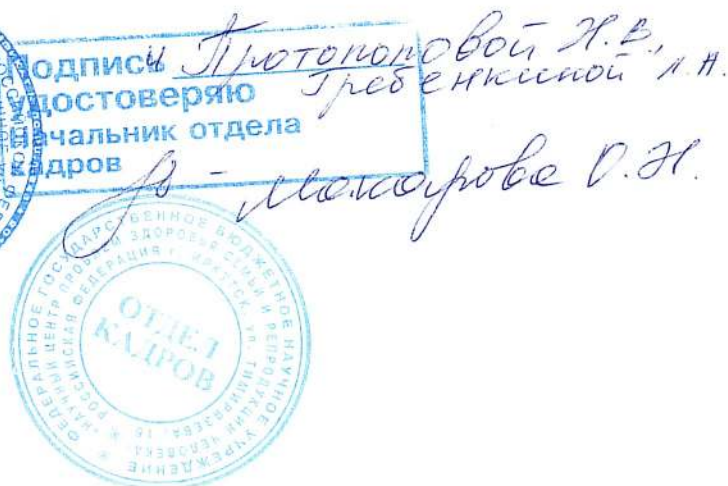 Подписи Протопоповой Н.В.,
Гребенкиной Л.А.
удостоверяю
Начальник отдела
кадров
Макарова О.Н.
ФЕДЕРАЛЬНОЕ ГОСУДАРСТВЕННОЕ БЮДЖЕТНОЕ НАУЧНОЕ УЧРЕЖДЕНИЕ
«НАУЧНЫЙ ЦЕНТР ПРОБЛЕМ ЗДОРОВЬЯ СЕМЬИ И РЕПРОДУКЦИИ ЧЕЛОВЕКА»
РОССИЙСКАЯ ФЕДЕРАЦИЯ г. ИРКУТСК, ул. ТИМИРЯЗЕВА, 16
ОТДЕЛ
КАДРОВ